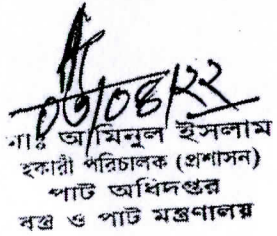 ০৩/০৪/২২
মোঃ আমিনুল ইসলাম
সহকারী পরিচালক (প্রশাসন)
পাট অধিদপ্তর
বস্ত্র ও পাট মন্ত্রণালয়